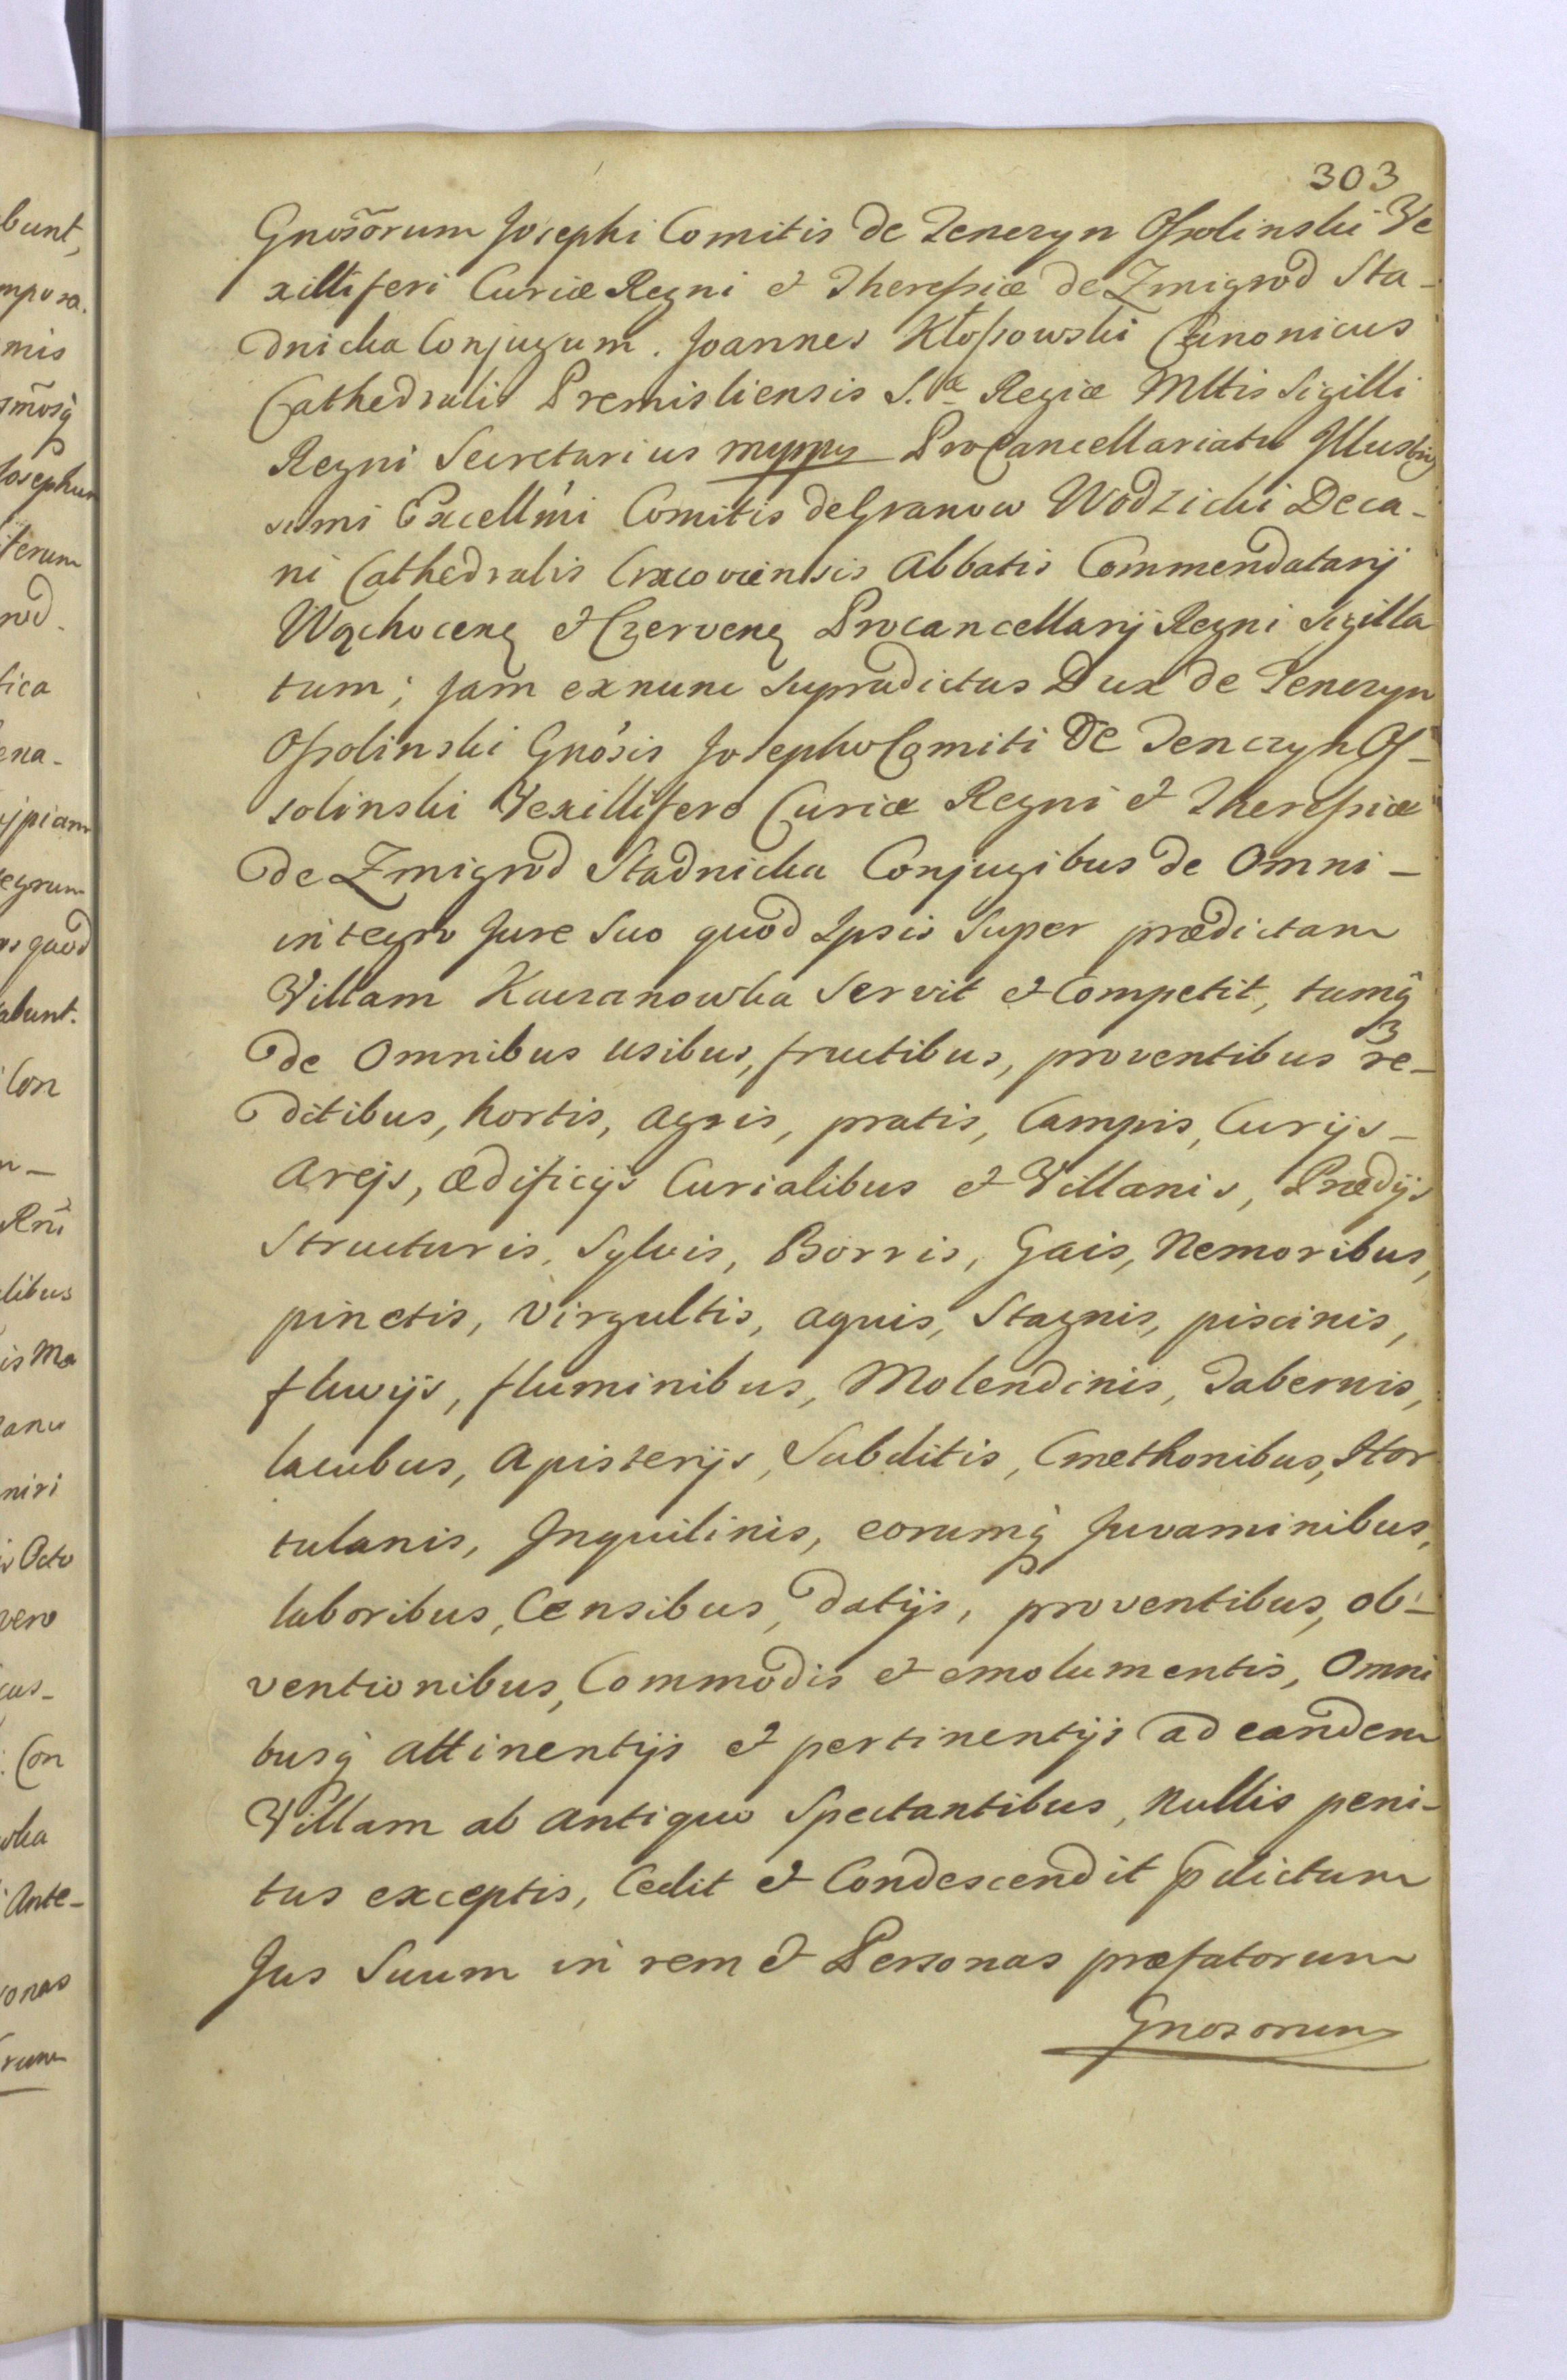 303
Gnosorum Josephi Comitis de Tenczyn Ossolinski Ve
xilliferi Curiæ Regni et Theressiæ de Zmigrod Sta-
dnicka Conjugum. Joannes Kłossowski Canonicus
Cathedralis Premisliensis S.æ Regiæ Mttis Sigilli
Regni Secretarius mppp ProCancellariatu Illustris
simi Excellmi Comitis de Granow Wodzicki Deca-
ni Cathedralis Cracoviensis Abbatis Commendatarij
Wąchocen et Czerven Procancellarij Regni Sigilla
tum; jam ex nunc supradictus Dux de Tenczyn
Ossolinski Gnosis Josepho Comiti de Tenczyn Os-
solinski Vexillifero Curiæ Regni et Theressiæ
de Zmigrod Stadnicka Conjugibus de Omni-
integro Jure Suo quod Ipsis Super prædictam
Villam Kaczanowka Servit et Competit, tumq
de Omnibus usibus, fructibus, proventibus re-
ditibus, hortis, agris, pratis, Campis, Curijs-
Arejs, ædificijs Curialibus et Villanis, Prædijs
Structuris, Sylvis, Borris, Gais, Nemoribus,
pinetis, Virgultis, aquis, Stagnis, piscinis,
fluvijs, fluminibus, Molendinis, Tabernis,
lacubus, Apisterijs, Subditis, Cmethonibus, Hor
tulanis, Inquilinis, eorumq Juvaminibus,
laboribus, Censibus, datijs, proventibus, ob-
ventionibus, Commodis et emolumentis, Omni
busq attinentijs et pertinentijs ad eandem
Villam ab antiquo Spectantibus, Nullis peni-
tus exceptis, Cedit et Condescendit pdictum
Jus Suum in rem et Personas præfatorum
Gnosorum